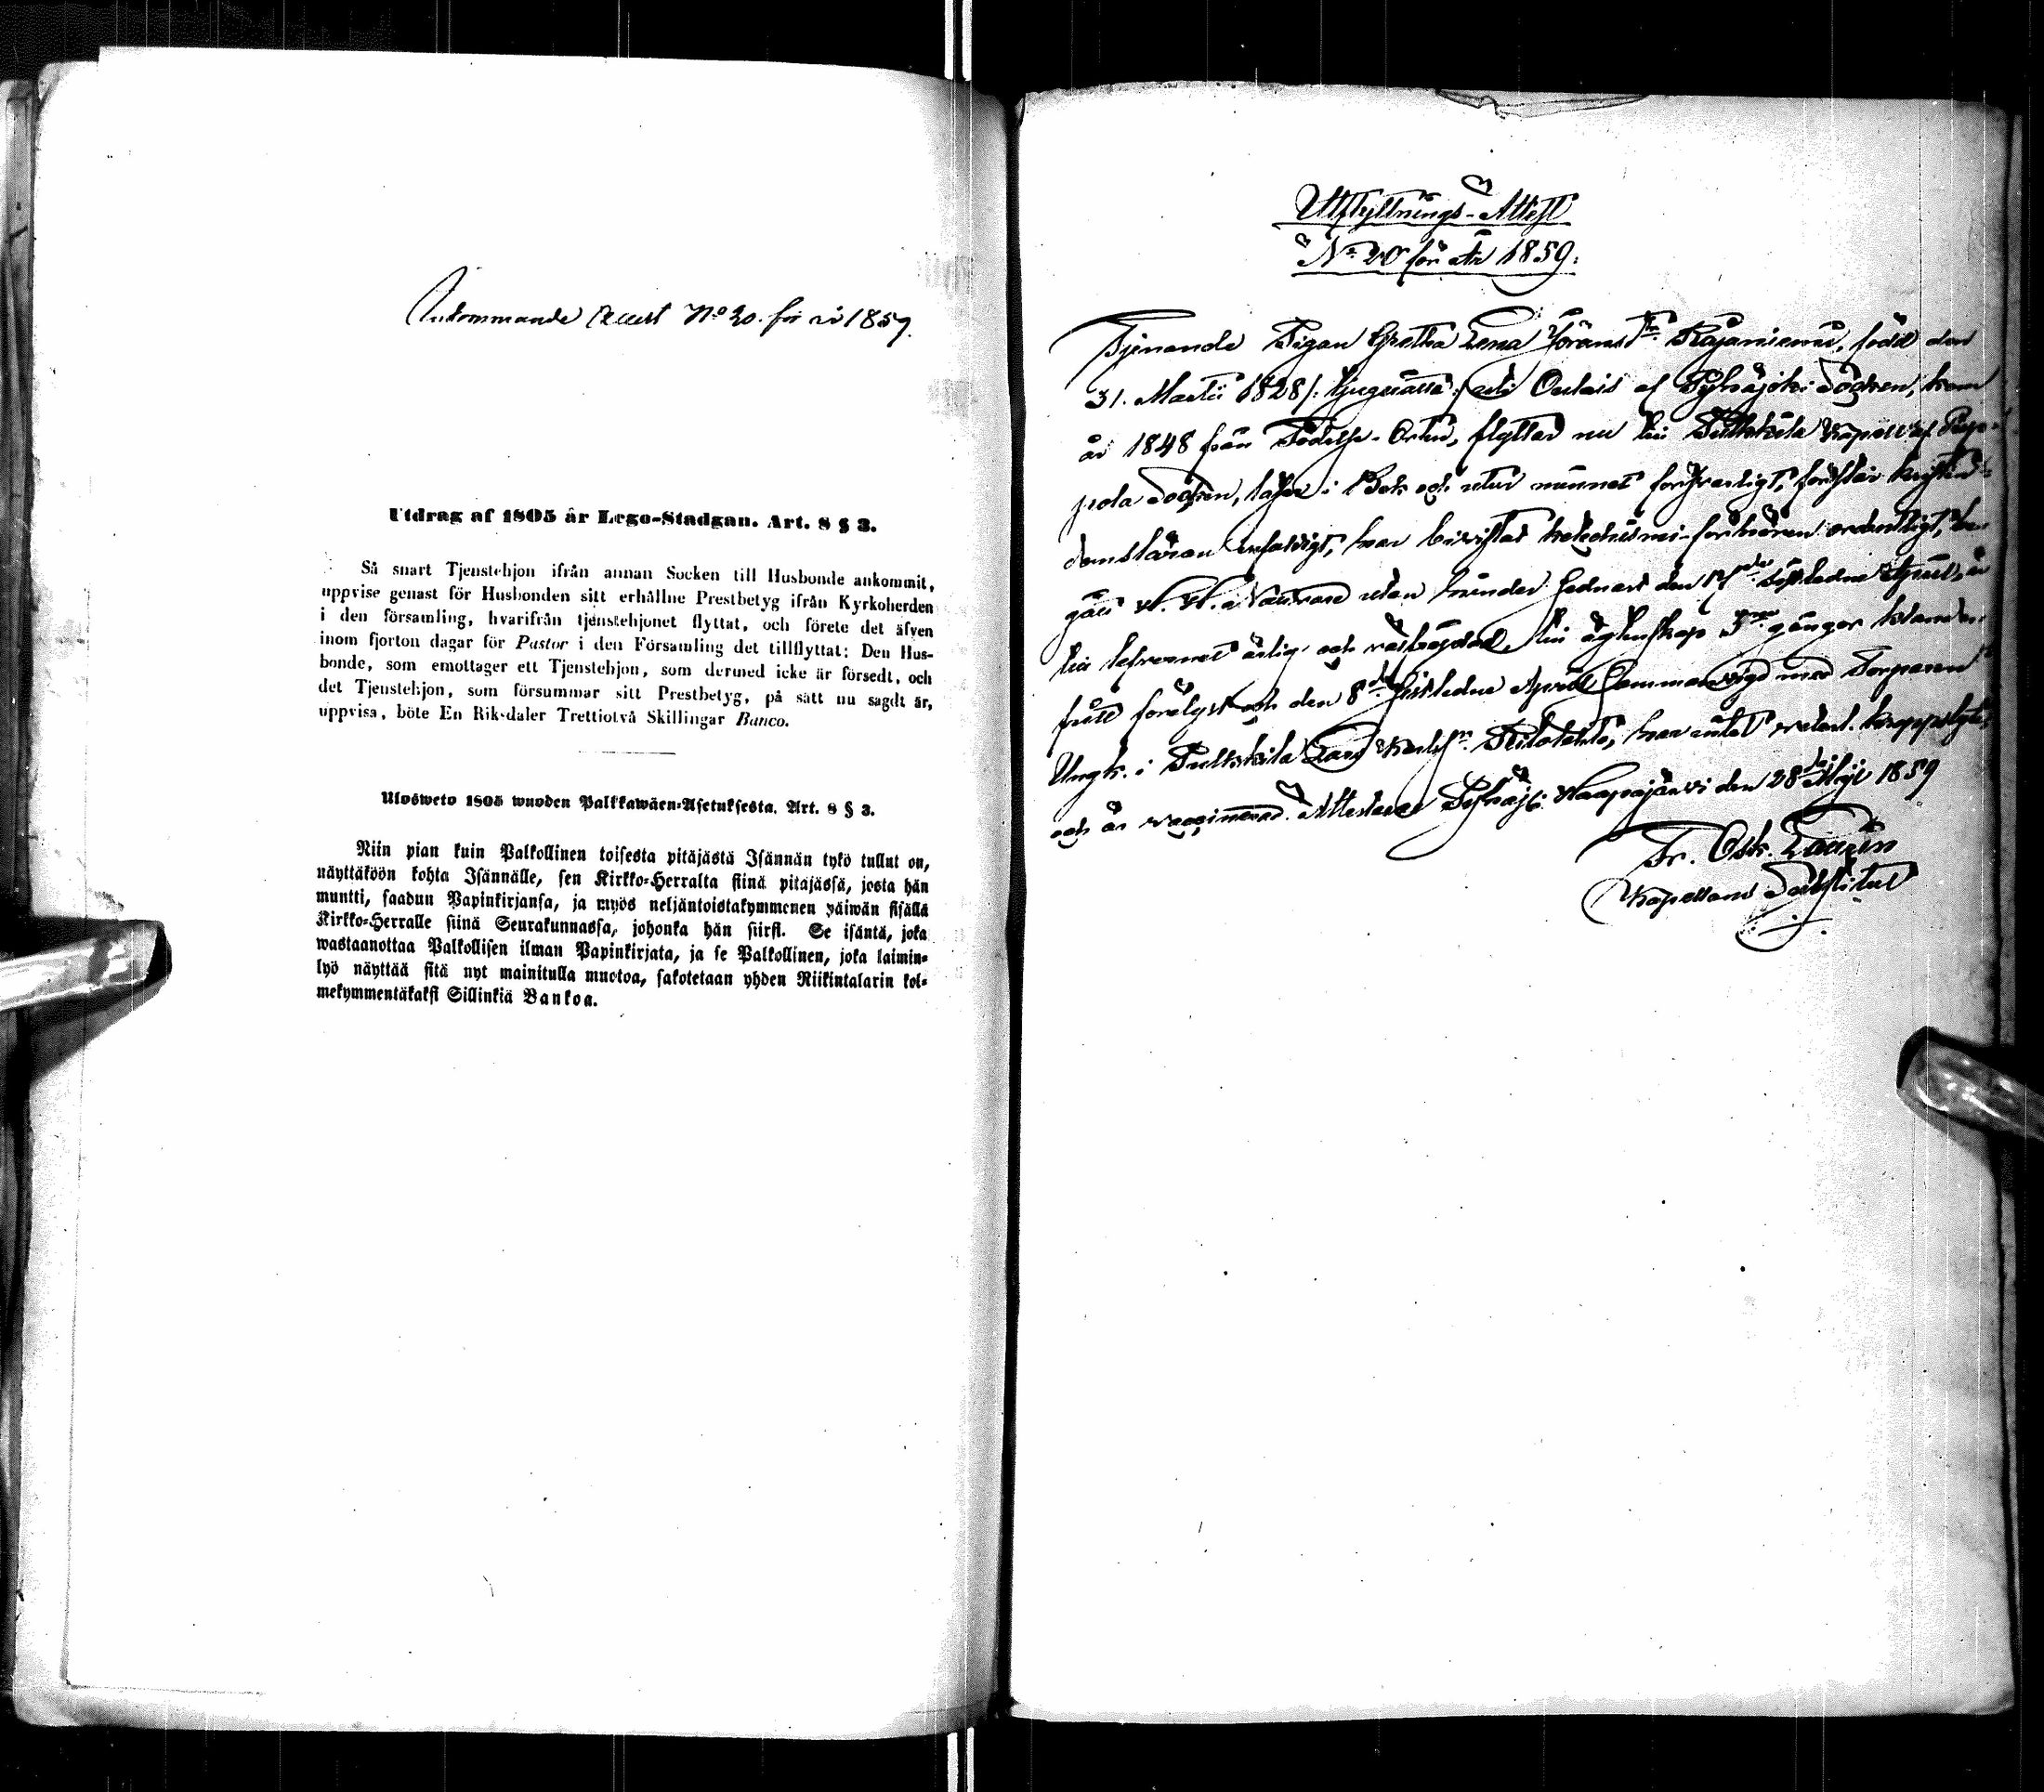 Inkommande Attest No 20. för år 1859.
Utdrag af 1805 år Lego-Stadgan. Art. 8 § 3.
Så snart Tjenstehjon ifrån annan Socken till Husbonde ankommit,
uppvise genast för Husbonden sitt erhållne Prestbetyg ifrån Kyrkoherden
i den församling, hvarifrån tjenstehjonet flyttat, och förete det äfven
inom fjorton dagar för Pastor i den Församling det tillflyttat: Den Hus-
bonde, som emottager ett Tjenstehjon, som dermed icke är försedt, och
det Tjenstehjon, som försummar sitt Prestbetyg, på sätt nu sagdt är,
uppvisa, böte En Riksdaler Trettiotvå Skillingar Banco.
Ulosweto 1805 wuoden Palkkawäen-Asetuksesta. Art. 8 § 3.
Niin pian kuin Palkollinen toisesta pitäjästä Isännän tykö tullut on,
näyttäköön kohta Isännälle, sen Kirkko-Herralta siinä pitäjässä, josta hän
muutti, saadun Papinkirjansa, ja myös neljäntoistakymmenen päiwän sisällä
Kirkko-Herralle siinä Seurakunnassa, johonka hän siirsi. Se isäntä, joka
wastaanottaa Palkollisen ilman Papinkirjata, ja se Palkollinen, joka laimin-
lyö näyttää sitä nyt mainitulla muotoa, sakotetaan yhden Riikintalarin kol-
mekymmentäkaksi Sillinkiä Bankoa.
Utflyttnings-Attest
No 20 för år 1859.
Tjenande Pigan Gretha Lena Jöransdr. Rajaniemi, född den
31. Martii 1828 /: tjuguåtta :/ uti Oulais af Pyhäjoki Socken, kom
år 1848 från Födelse-Orten, flyttar nu till Pulkkila Kapell af Pip-
pola Socken, läser i Bok och utur minnet försvarligt, förstår kristen-
domsläran enfaldigt, har bivistat katechismi-förhören ordentligt, be-
gått H. H. Nattvard utan hinder sednast den 17de sistledne April, är
till lefvernet ärlig och välfrejdad, till äktenskap 3ne gånger klander-
fritt förelyst och den 8de sistledne April Sammanvigd med Torparen
Ungk. i Pulkkila Carl Carlsn. har intet kopporna
och är vaccinerad. Attesterar Pyhäj: Haapajärvi den 28de Maji 1859
Fr. Osk.
Kapellans Substitut